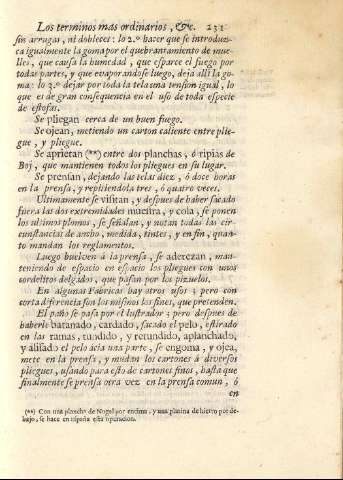 Los terminos mas ordinarios, &c. 231
sin arrugar, ni dobleces: lo 2.º hacer que se introduzca
igualmente la goma por el quebrantamiento de muelles,
que causa la humedad, que esparce el fuego por
todas partes, y que evaporandose luego, deja alli la goma:
lo 3.º dejar por toda la tela una tension igual, lo
que es de gran consequencia en el uso de toda especie
de estofas.
Se pliegan cerca de un buen fuego.
Se ojean, metiendo un carton caliente entre pliegue,
y pliegue.
Se aprietan (**) entre dos planchas, ó ripias de
Boj, que mantienen todos los pliegues en su lugar.
Se prensan, dejando las telas diez, ó doce horas
en la prensa, y repitiendola tres, ó quatro veces.
Ultimamente se visitan, y despues de haber sacado
fuera las dos extremidades muestra, y cola, se ponen
los ultimos plomos, se señalan, y notan todas las circunstancias
de ancho, medida, tintes, y en fin, quanto
mandan los reglamentos.
Luego buelven á la prensa, se aderezan, manteniendo
de espacio en espacio los pliegues con unos
cordelitos delgados, que pasan por los pizuelos.
En algunas Fabricas hay otros usos; pero con
corta diferencia son los mismos los fines, que pretenden.
El paño se pasa por el lustrador; pero despues de
haberle batanado, cardado, sacado el pelo, estirado
en las ramas, tundido, y retundido, aplanchado,
y alisado el pelo ácia una parte, se engoma, y ojea,
mete en la prensa, y mudan los cartones á diversos
pliegues, usando para esto de cartones finos, hasta que
finalmente se prensa otra vez en la prensa comun, ó
en
(**) Con una plancha de Nogal por encima, y una planina de hierro por debajo,
se hace en España esta operacion.